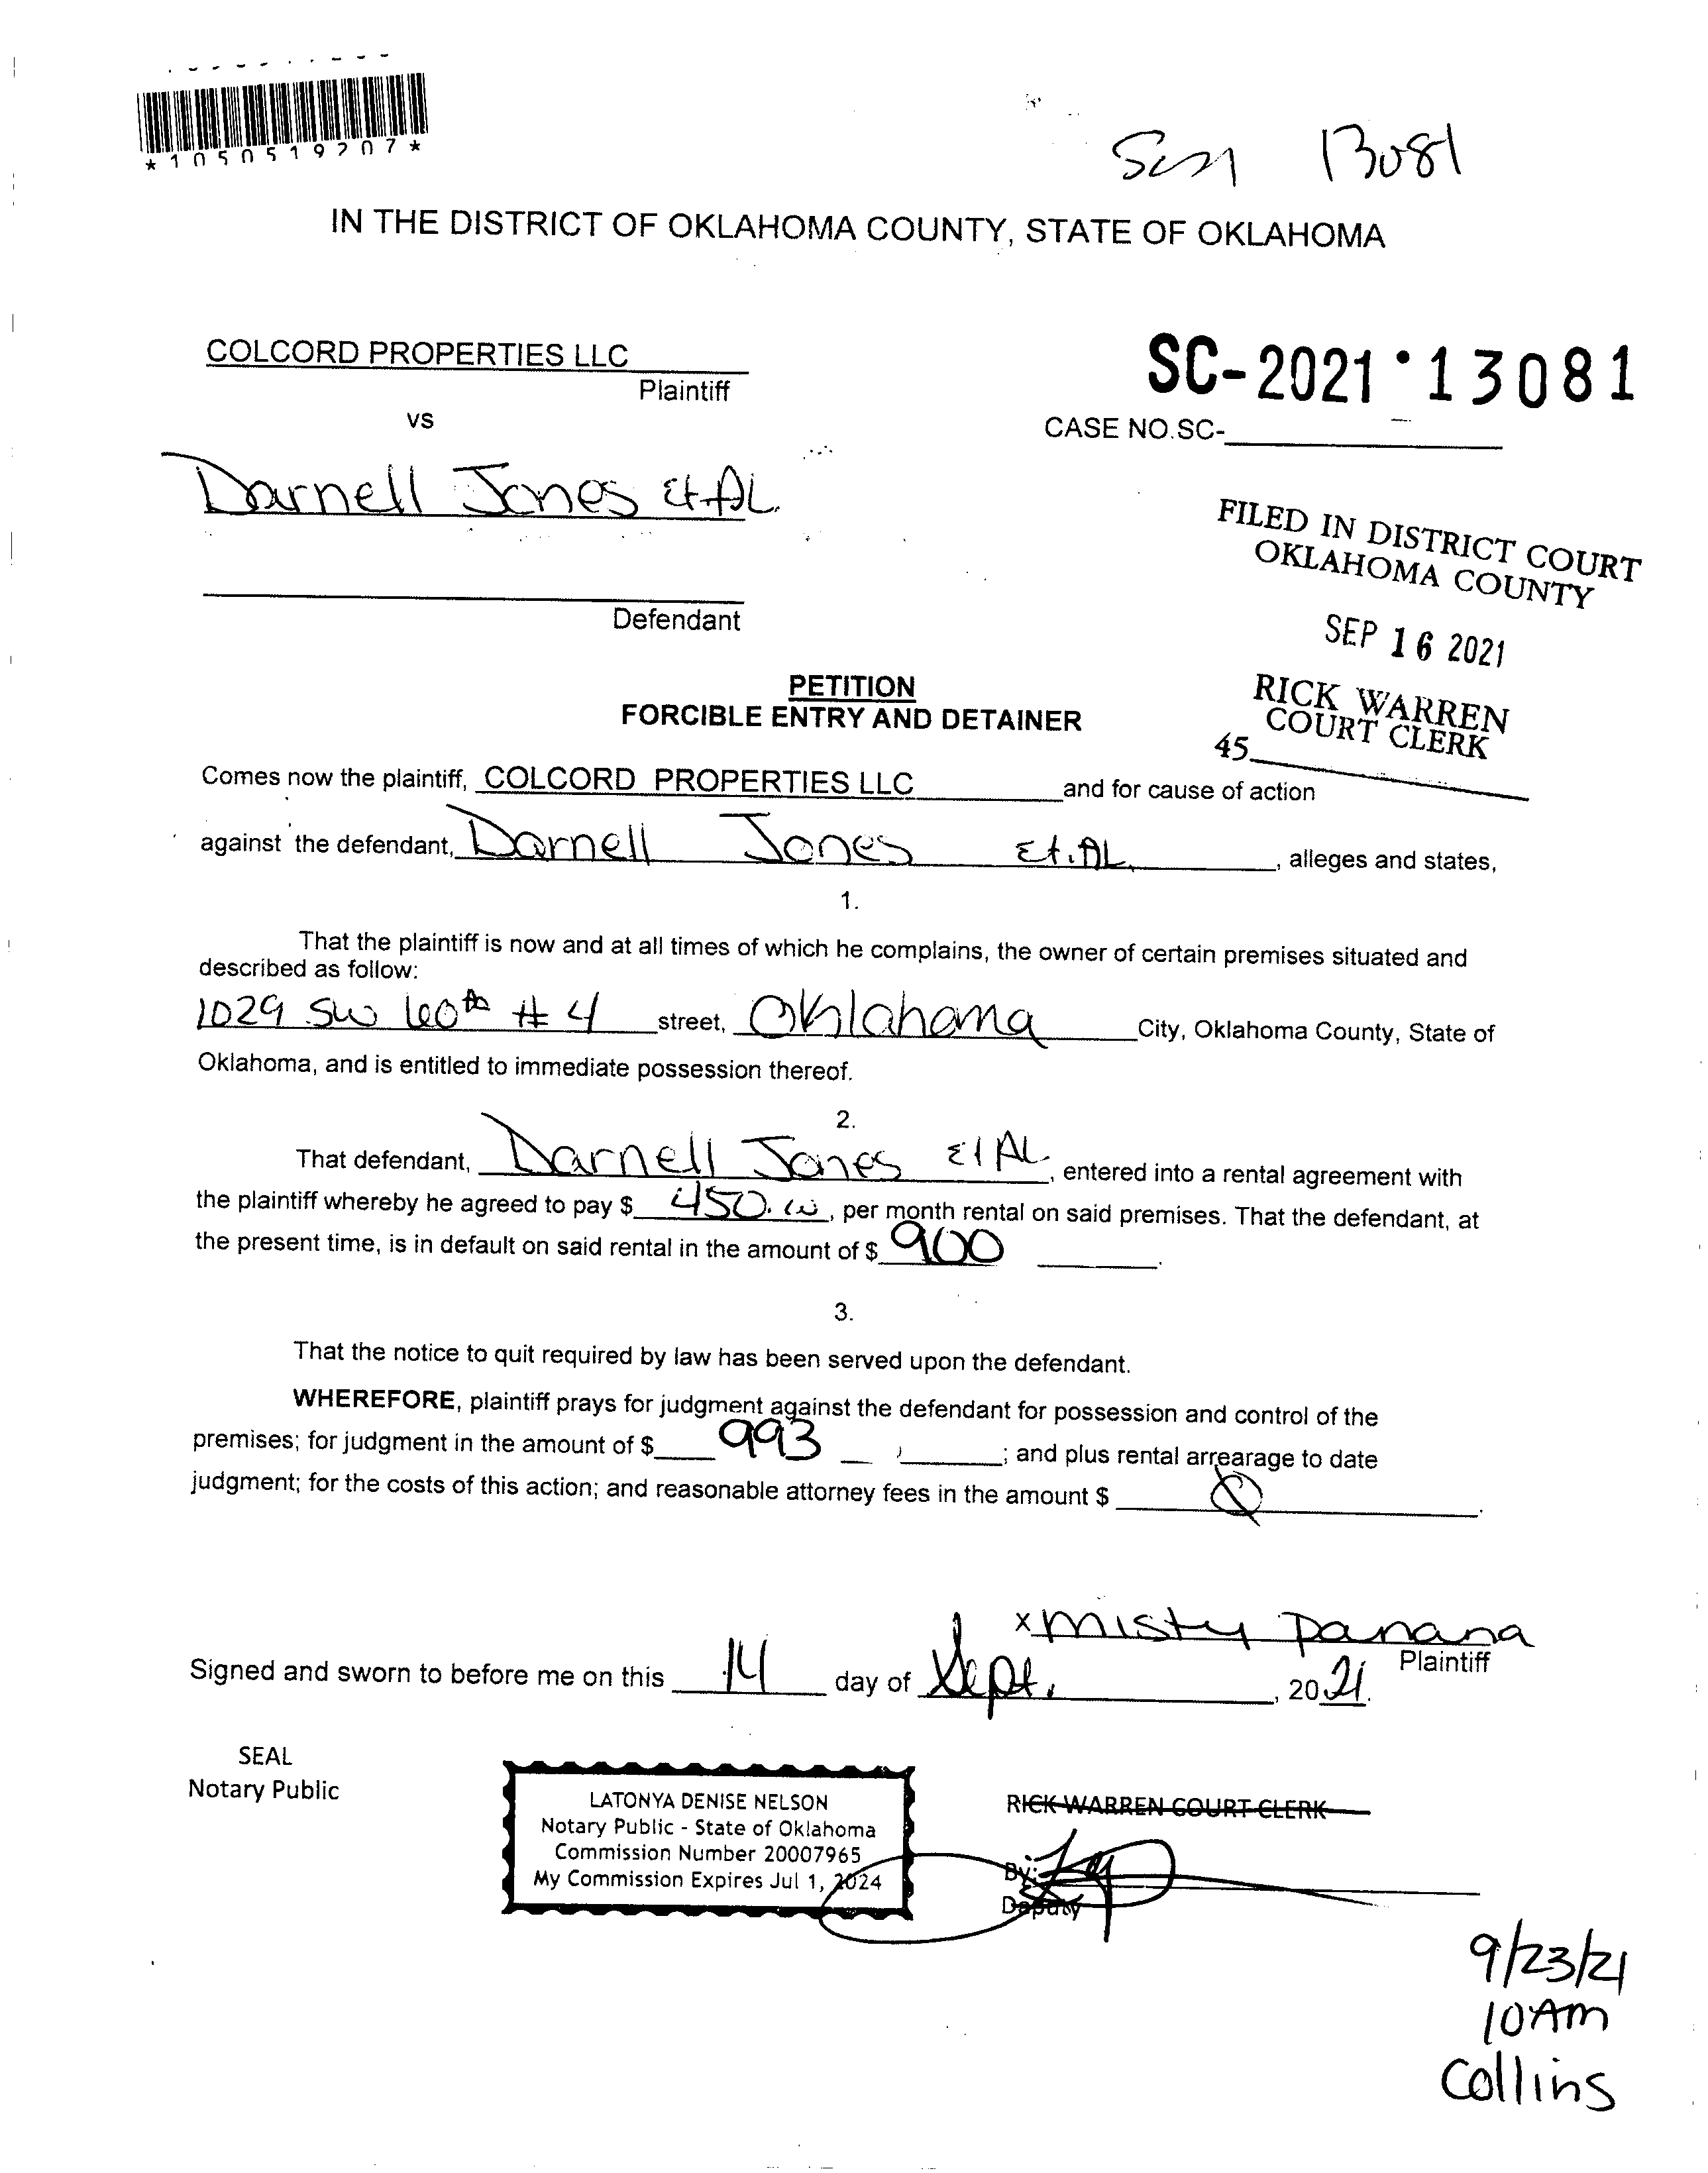 *1050519207*
13081
IN THE DISTRICT OF OKLAHOMA COUNTY, STATE OF OKLAHOMA
COLCORD PROPERTIES LLC
Plaintiff
vs
SC-2021 · 13081
CASE NO.SC-
Darnell Jones et AL.
Defendant
FILED IN DISTRICT COURT
OKLAHOMA COUNTY
SEP 16 2021
RICK WARREN
COURT CLERK
45
PETITION
FORCIBLE ENTRY AND DETAINER
Comes now the plaintiff, COLCORD PROPERTIES LLC and for cause of action
against the defendant, Darnell Jones Et. AL. , alleges and states,
1.
That the plaintiff is now and at all times of which he complains, the owner of certain premises situated and
described as follow:
1029 SW 60th # 4 street, Oklahoma City, Oklahoma County, State of
Oklahoma, and is entitled to immediate possession thereof.
2.
That defendant, Darnell Jones Et AL. , entered into a rental agreement with
the plaintiff whereby he agreed to pay $ 450.00 , per month rental on said premises. That the defendant, at
the present time, is in default on said rental in the amount of $ 900 .
3.
That the notice to quit required by law has been served upon the defendant.
WHEREFORE, plaintiff prays for judgment against the defendant for possession and control of the
premises; for judgment in the amount of $ 993 ; and plus rental arrearage to date
judgment; for the costs of this action; and reasonable attorney fees in the amount $ 0 .
x Misty Panana
Plaintiff
Signed and sworn to before me on this 14 day of Sept. , 2021.
SEAL
Notary Public
LATONYA DENISE NELSON
Notary Public - State of Oklahoma
Commission Number 20007965
My Commission Expires Jul 1, 2024
RICK WARREN COURT CLERK
By:
Deputy
9/23/21
10AM
Collins